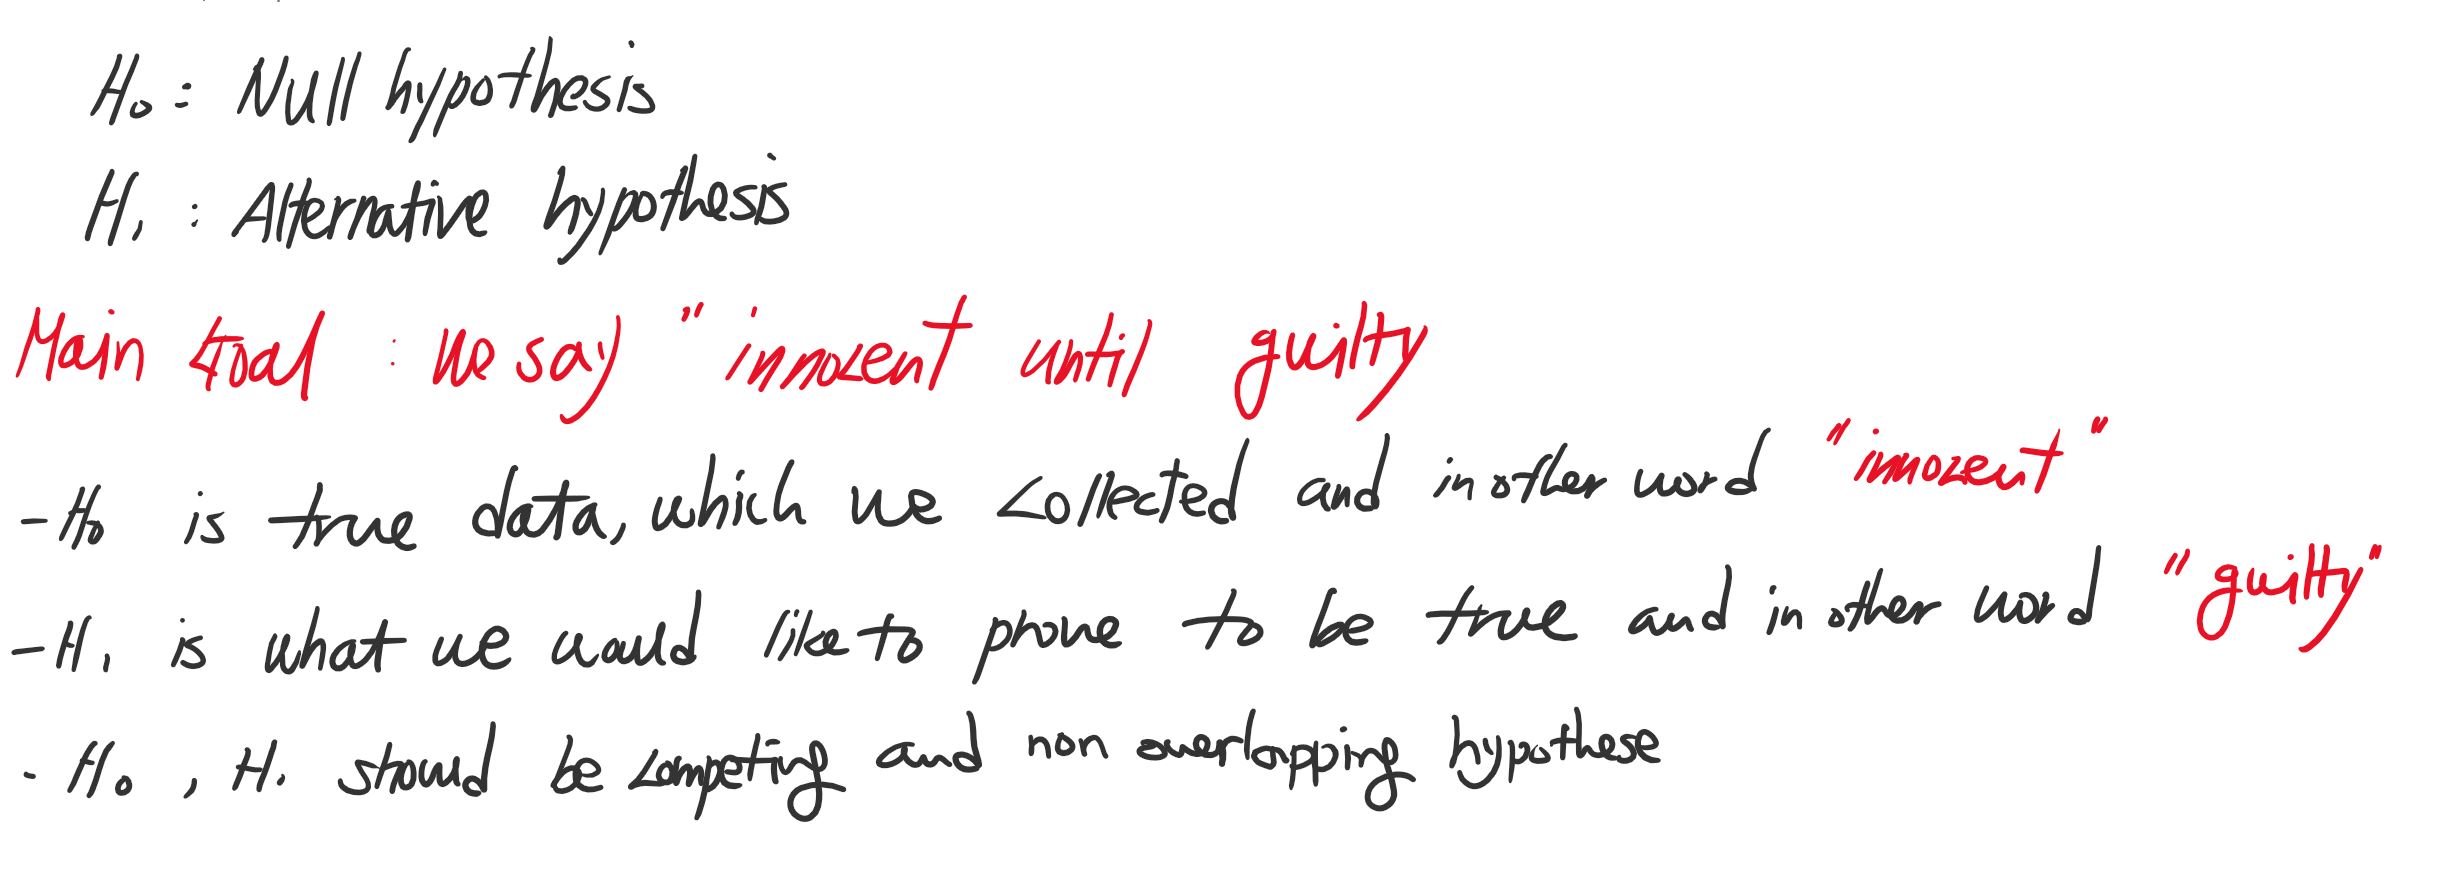 H₀ : Null hypothesis
H₁ : Alternative hypothesis
Main Goal : We say " innozent until guilty
- H₀ is true data, which we collected and in other word "innozent"
- H₁ is what we would like to prove to be true and in other word "guilty"
- H₀ , H₁ should be competing and non overlapping hypothese